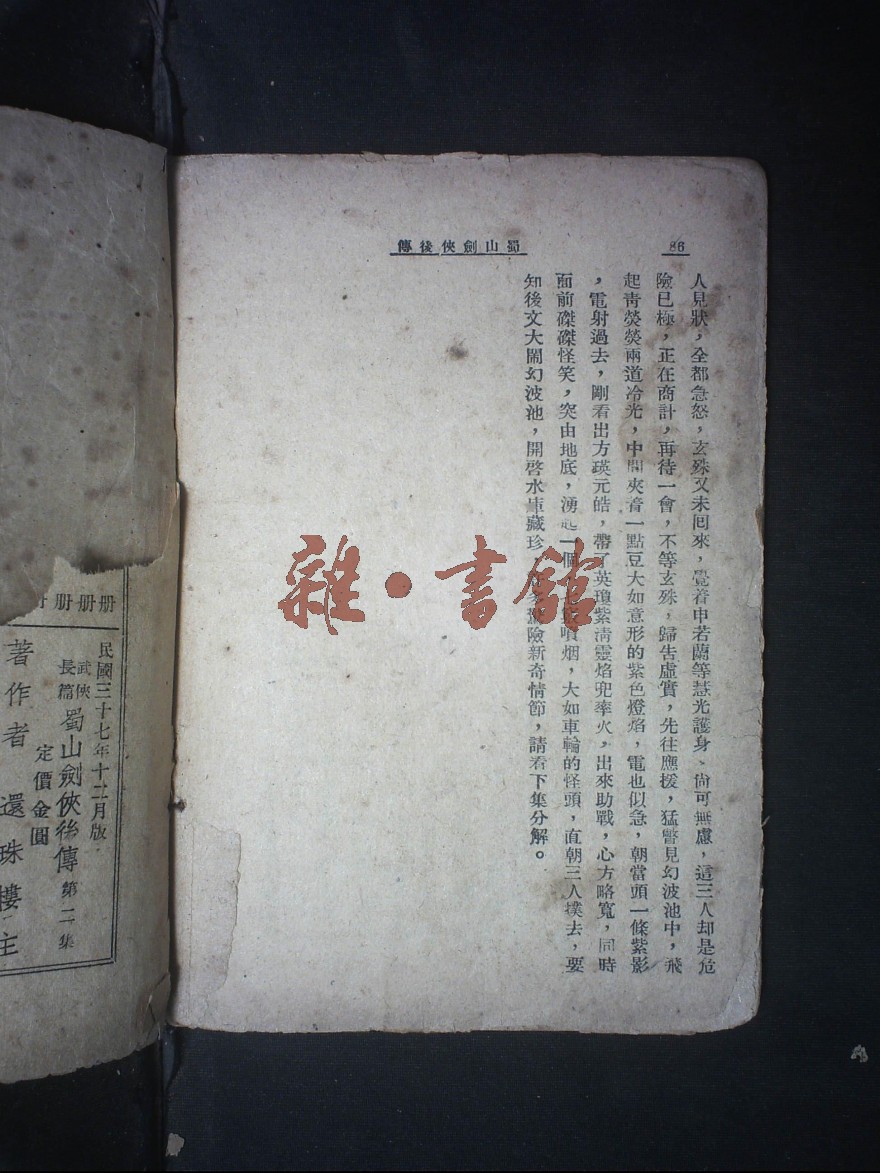 86
蜀山劍俠後傳
人見狀，全都急怒，玄殊又未囘來，覺着申若蘭等慧光護身、尙可無慮，這三人却是危
險已極，正在商計，再待一會，不等玄殊，歸告虛實，先往應援，猛瞥見幻波池中，飛
起靑熒熒兩道冷光，中間夾着一點豆大如意形的紫色燈焰，電也似急，朝當頭一條紫影
，電射過去，剛看出方瑛元皓，帶了英瓊紫淸靈焰兜率火，出來助戰，心方略寬，同時
面前磔磔怪笑，突由地底，湧起一個噴烟，大如車輪的怪頭，直朝三人撲去，要
知後文大鬧幻波池，開啓水庫藏珍險新奇情節，請看下集分解。
雜·書館
册册册
民國三十七年十二月版
武俠長篇蜀山劍俠後傳第二集
定價金圓
著作者還珠樓主